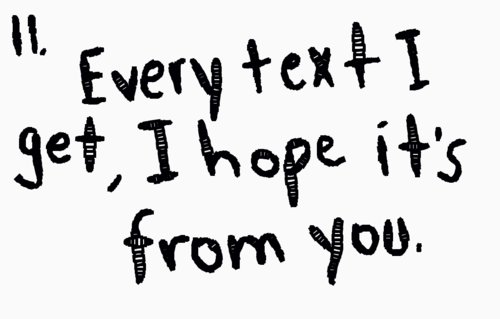 11.
Every text I
get, I hope it's
from you.